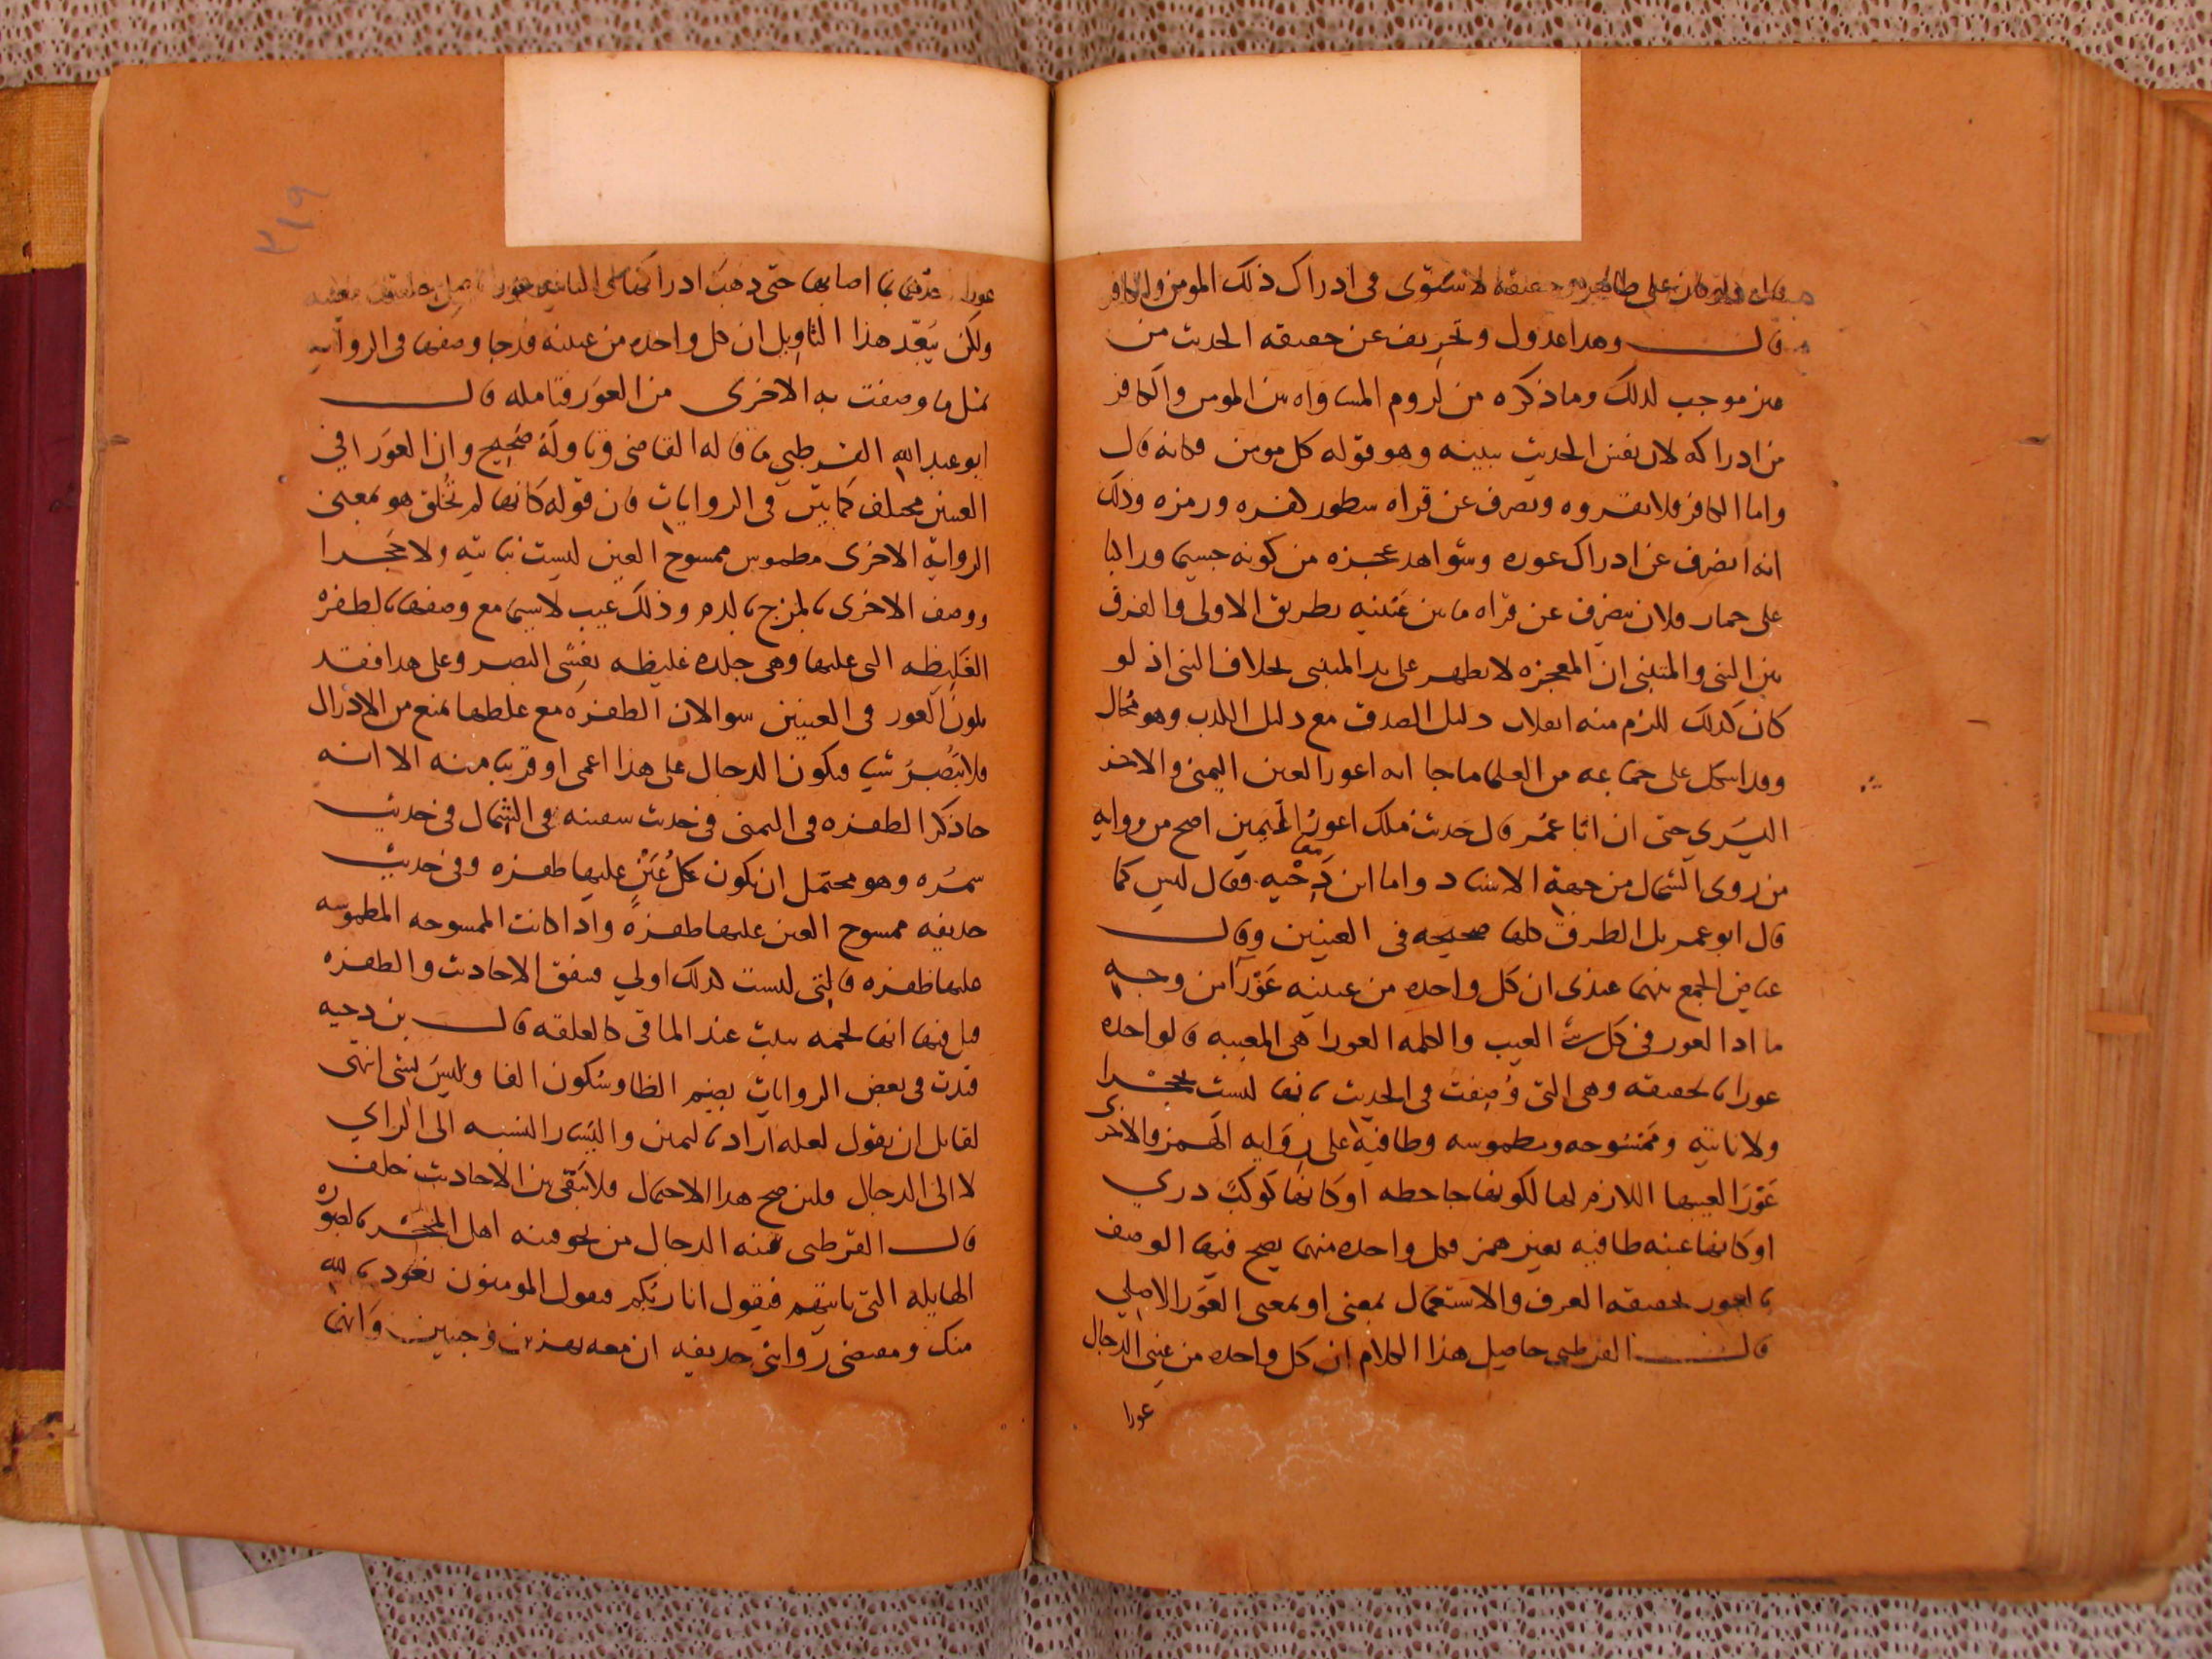 على ظاهره وحقيقة لاستوى في ادراك ذلك المومن والكافر
قال وهدا عدول وتحريف عن حقيقه الحديث من
غير موجب لدلك وما ذكره من لروم المساواه بين المومن والكافر
من ادراكه لان نفس الحديث يبينه وهو قوله كل مومن فكانه قال
واما الكافر فلا يقروه ويصرف عن قراه سطور كفره ورمزه وذلك
انه انصرف عن ادراك عوره وشواهد عجزه من كونه جسيما وراكبا
على حمار فلان ينصرف عن قراه ما بين عينيه بطريق الاولى والفرق
بين النبي والمتنبي ان المعجزه لا يظهر على يد المتنبي بخلاف النبي اذ لو
كان كدلك للزم منه انقلاب دليل الصدق مع دليل الكدب وهو محال
وقد اشكل على جماعه من العلما ما جا انه اعور العين اليمنى والاخر
اليسرى حتى ان ابا عمر قال حديث ملك اعور العين اصح من روايه
من روى الشمال من جهة الاسناد واما ابن دحيه فقال ليس كما
قال ابو عمر بل الطرق كلها صحيحه في العينين وقال
عياض الجمع بينهما عندي ان كل واحده من عينيه عورا من وجه
ما ادا العور في كل شي العيب والكلمه العورا هي المعيبه فالواحده
عورا بالحقيقه وهي التي وصفت في الحديث بانها ليست بحجرا
ولا ناتيه وممسوحه ومطموسه وطافية على روايه الهمز والاخرى
عورا لعيبها اللازم لها لكونها جاحظه او كانها كوكب دري
او كانها عنبه طافيه بغير همز فكل واحده منهما يصح فيها الوصف
بالعور بحقيقه العرف والاستعمال بمعنى او بمعنى العور الاصلي
قال القرطبي حاصل هذا الكلام ان كل واحده من عيني الدجال
عورا
عورا بما اصابها حتى ذهب ادراكها
ولكن يبعد هذا التاويل ان كل واحده من عينيه قد جا وصفها في الروايه
بمثل ما وصفت به الاخرى من العور فتامله قال
ابو عبد الله القرطبي ما قاله القاضي وتاوله صحيح وان العور في
العينين مختلف كما بين في الروايات فان قوله كانها لم تخلق هو بمعنى
الرواية الاخرى مطموس ممسوح العين ليست بناتيه ولا حجرا
ووصف الاخرى بالمزج بالدم وذلك عيب لاسيما مع وصفها بالظفره
الغليظه التي عليها وهي جلده غليظه يغشى البصر وعلى هدا فقد
يكون العور في العينين سوا لان الظفره مع غلظها تمنع من الادراك
فلا يبصر شيا فيكون الدجال على هذا اعمى او قريبا منه الا انه
جا ذكر الظفره في اليمنى في حديث سفينه وفي الشمال في حديث
سمره وهو محتمل ان يكون كل عين عليها ظفره وفي حديث
حديفه ممسوح العين عليها ظفرة واذا كانت الممسوحه المطموسه
عليها ظفره فالتي ليست كدلك اولي فيتفق الاحاديث والظفره
قيل فيها انها لحمه تنبت عند الماقي كالعلقه قال بن دحيه
قيدت في بعض الروايات بضم الظا وسكون الفا وليس بشي انتهى
لقايل ان يقول لعله اراد باليمين واليسار النسبه الى الراي
لا الى الدجال فلين صح هدا الاحتمال فلا يبقى بين الاحاديث خلف
قال القرطبي فتنه الدجال من نحو فتنه اهل المحشر بالصوره
الهايله التي تاتيهم فيقول انا ربكم فيقول المومنون نعوذ بالله
منك ومقتضى رواية حديفه ان معه نهرين وجنتين وانما
٣١٩